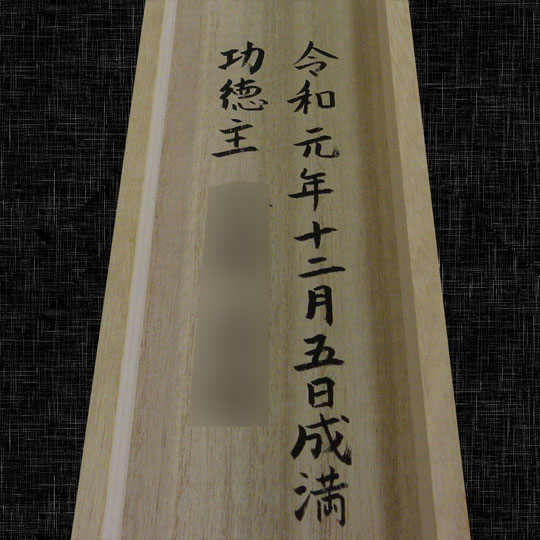 令和元年十二月五日成満
功徳主